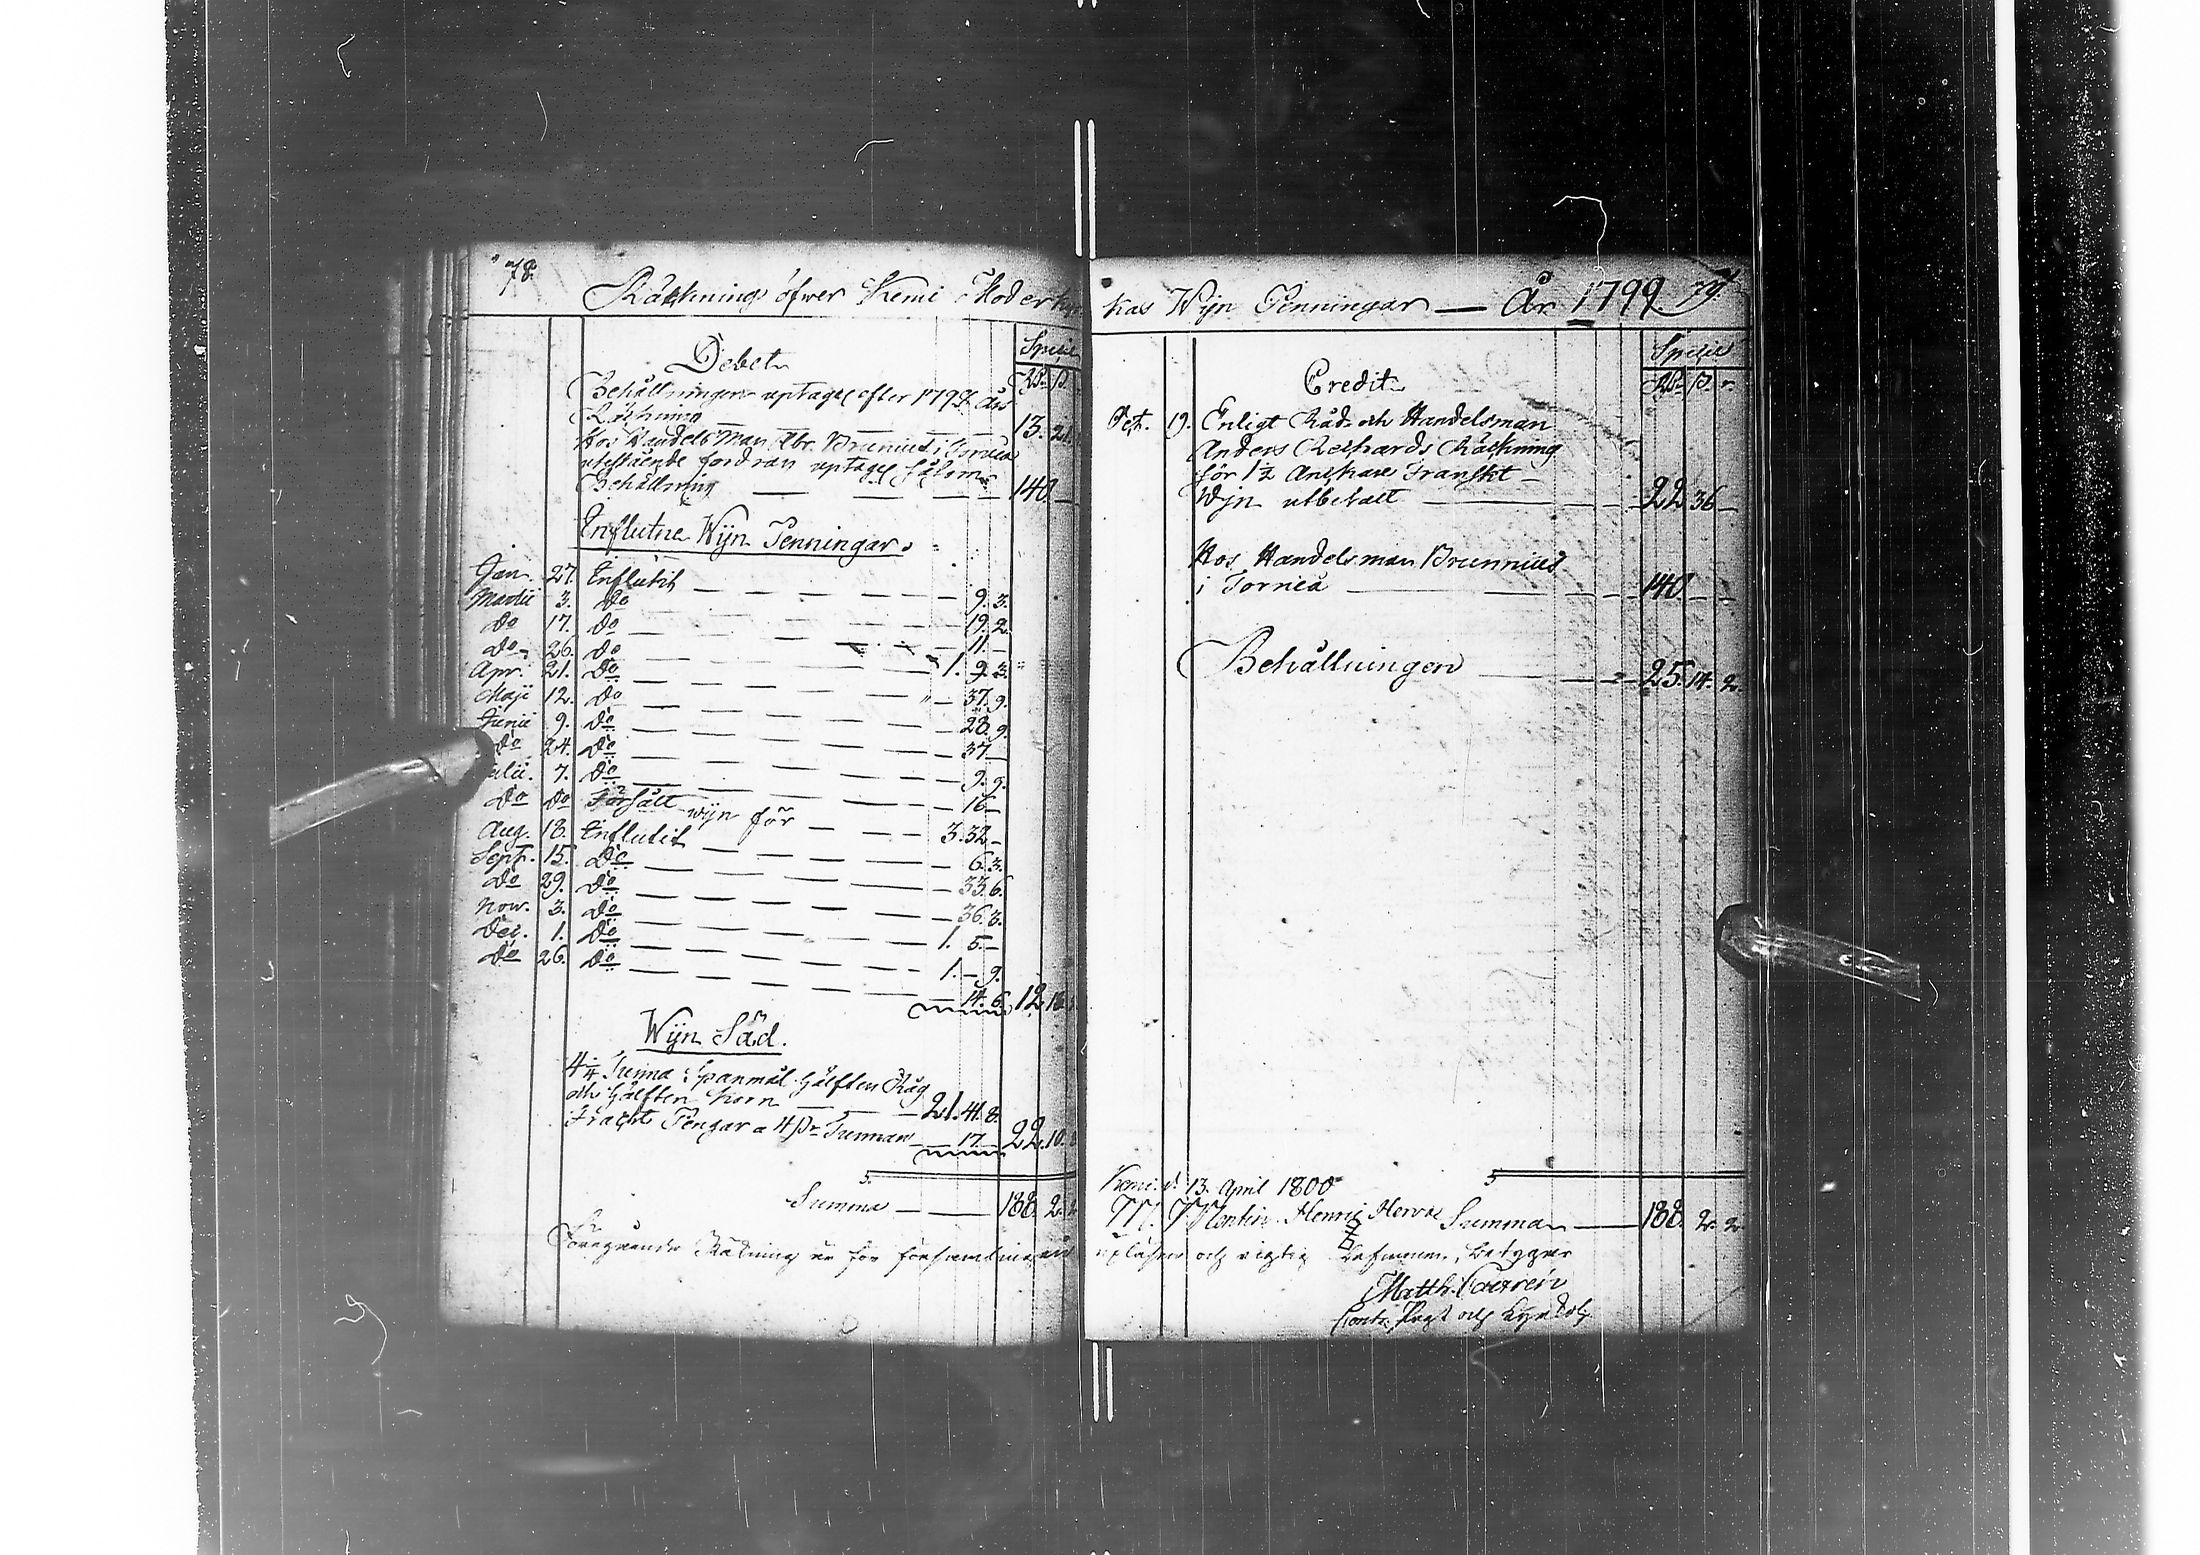 78.
Räkning öfwer Kemi Moderkyr
Debet
Specie
Rd. ß.
Behållningen uptages efter 1798 Års
Räkning — — — 13. 21.
Hos Handels Man Abr. Brunius i Torneå
utestående fordran uptages såsom
Behållning — — — 140 —
Influtne Wijn Penningar.
Jan. 27. Influtit — — — 9. 3.
Martii 3. do — — — 19. 2.
do 17. do — — — 11. —
do 26. do — — — 1. 9. 3.
Apr. 21. do — — — 37. 9.
Maji 12. do — — — 28. 9.
Junii 9. do — — — 37. —
do 24. do — — — 9. 9.
Julii. 7. do — — — 16 —
do do Försålt wijn för — — 3. 32 —
Aug. 18. Influtit — — — 6. 3.
Sept. 15. do — — — 33. 6.
do 29. do — — — 36. 3.
Now. 3. do — — — 1. 5. —
Dec. 1. do — — — 1. — 9.
do 26. do — — — 14. 6. 12. 18.
Wijn Säd.
4 1/4 Tunna Spanmål hälften Råg
och hälften Korn — — 21. 41. 8.
Frackt Pengar a 4 ß Tunnan — 17. — 22. 10.
Summa — — 188. 2. 2
Föregående Räkning är för församlingen
kas Wijn Penningar — År 1799. 79.
Credit
Specie
Rd. ß. r.
Oct. 19. Enligt Råd- och Handelsman
Anders Reichards Räkning
för 1 1/2 Anckare Franskt
Wijn utbetalt — — — 22 36 —
Hos Handelsman Brunnius
i Torneå — — — 140 — —
Behållningen — — — 25. 14. 2.
Kemi d. 13. April 1800
Henric Herva Summa — 188. 2. 2.
upläsen och rigtig befunnen, betygar
Matth. Castrén
Contr. Prost och Kyrkoh.